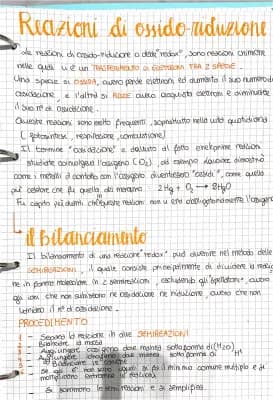 Reazioni di ossido-riduzione
Le reazioni di ossido-riduzione o dette "redox", sono reazioni chimiche
nelle quali vi è un TRASFERIMENTO di ELETTRONI TRA 2 SPECIE.
Una specie si OSSIDA, ovvero perde elettroni ed aumenta il suo numero di
ossidazione, e l'altra si RIDUCE ovvero acquista elettroni e diminuisce
il suo n° di ossidazione.
Queste reazioni sono molto frequenti, soprattutto nella vita quotidiana
(fotosintesi, respirazione, combustione)
Il termine "ossidazione" è dovuto al fatto che prime reazioni
studiate coinvolgeva l'ossigeno (O₂), ad esempio
come i metalli a contatto con l'ossigeno diventassero "ossidi", come quello
più celebre che fu quello del mercurio 2Hg + O₂ → 2HgO
Fu capito più avanti che queste reazioni non vi era obbligatoriamente l'ossigeno
il Bilanciamento
Il bilanciamento di una reazione "redox" può avvenire nel metodo delle
SEMIREAZIONI, il quale consiste principalmente di dividere la reazio
ne in forma molecolare in 2 semireazioni, escludendo gli "spettatori", ovvero
gli ioni che non subiscono né ossidazione né riduzione, ovvero che non
variano il n° di ossidazione.
PROCEDIMENTO
- Separo la reazione in due SEMIREAZIONI
- Bilanciare la massa
- Aggiungere ossigeno dove manca sotto forma di (H₂O)
- Aggiungere idrogeno dove manca sotto forma di H⁺
- Bilanciare le cariche
- Se gli e⁻ non sono uguali si fa il minimo comune multiplo e si
moltiplicano entrambe le reazioni
- Si sommano le semireazioni e si semplifica